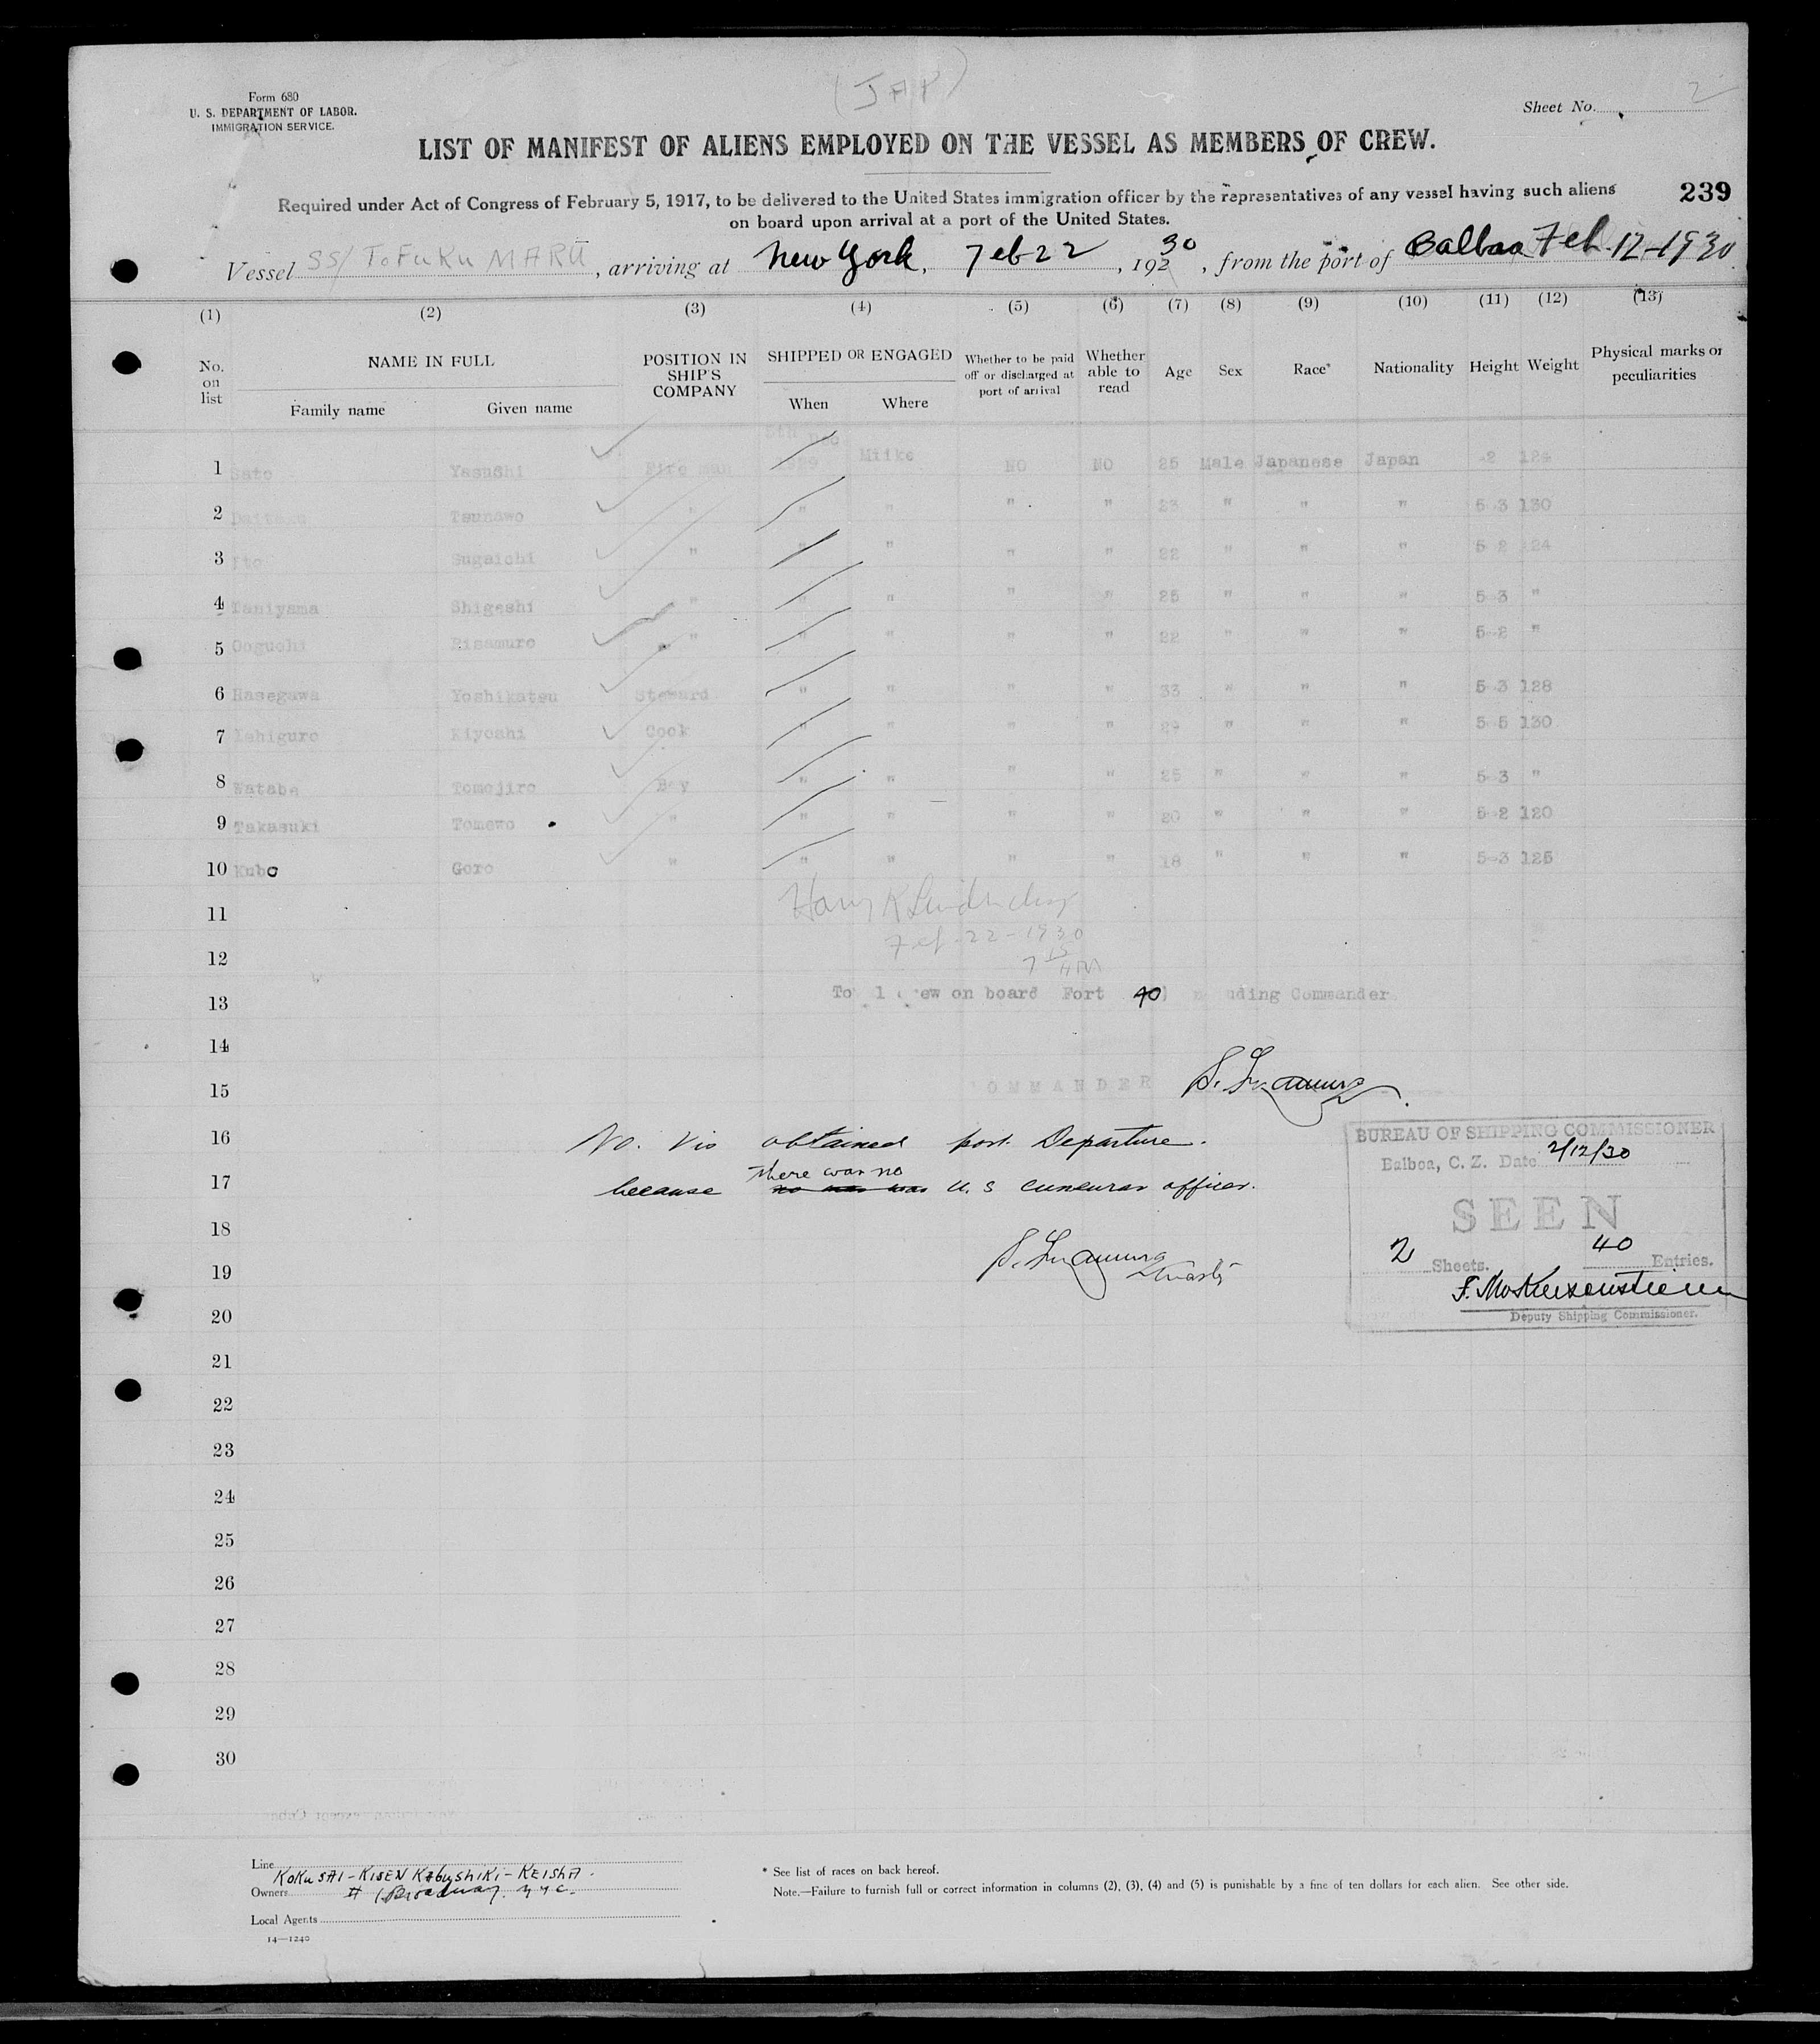 (JAP)
Form 680
U. S. DEPARTMENT OF LABOR.
IMMIGRATION SERVICE.
Sheet No. 2
LIST OF MANIFEST OF ALIENS EMPLOYED ON THE VESSEL AS MEMBERS OF CREW.
Required under Act of Congress of February 5, 1917, to be delivered to the United States immigration officer by the representatives of any vessel having such aliens
on board upon arrival at a port of the United States.
239
Vessel SS/ TOFUKU MARU, arriving at New York, Feb 22, 1930, from the port of Balboa Feb. 12-1930
(1) (2) (3) (4) (5) (6) (7) (8) (9) (10) (11) (12) (13)
No. on list NAME IN FULL Family name Given name POSITION IN SHIP'S COMPANY SHIPPED OR ENGAGED When Where Whether to be paid off or discharged at port of arrival Whether able to read Age Sex Race* Nationality Height Weight Physical marks or peculiarities
1 Sato Yasushi Fire man 1929 Miike NO NO 25 Male Japanese Japan
2 Tsunawo " " " " " 23 " " " 5-3 130
3 Ito Sugaichi " " " " " 22 " " " 5-2 124
4 Taniyama Shigeshi " " " " " 25 " " " 5-3 "
5 Ooguchi Hisamuro " " " " " 22 " " " 5-2 "
6 Hasegawa Yoshikatsu Steward " " " " 33 " " " 5-3 128
7 Kiyoshi Cook " " " " 29 " " " 5-5 130
8 Watabe Tomojiro Boy " " " " 25 " " " 5-3 "
9 Takasuki Tomewo " " " " " 20 " " " 5-2 120
10 Kubo Goro " " " " " 18 " " " 5-3 125
11
Feb-22-1930
12
7 15 AM
13 crew on board 40 Commander
14
15 COMMANDER
16 No. Vis obtained port Departure.
17 because there was no U.S officer.
18
19
20
21
22
23
24
25
26
27
28
29
30
BUREAU OF SHIPPING COMMISSIONER
Balboa, C. Z. Date 2/12/30
SEEN
2 Sheets. 40 Entries.
Deputy Shipping Commissioner.
Line KOKUSAI-KISEN KABUSHIKI-KEISHA.
Owners # 1 Broadway. NYC.
Local Agents
14—1240
* See list of races on back hereof.
Note.—Failure to furnish full or correct information in columns (2), (3), (4) and (5) is punishable by a fine of ten dollars for each alien. See other side.